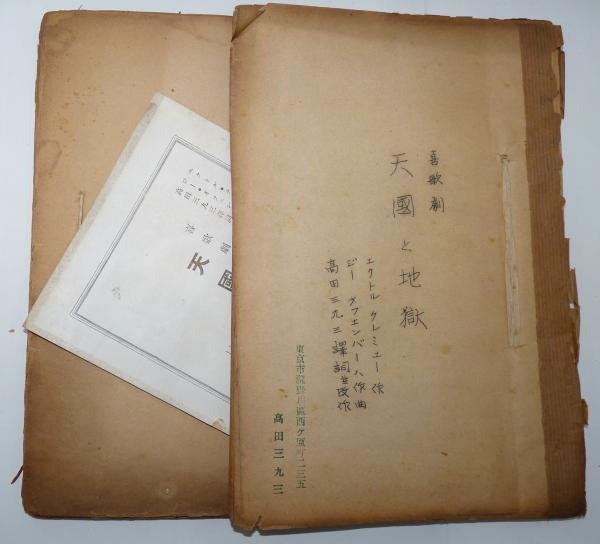 喜歌劇
天國と地獄
エクトル クレミユー 作
ジー オフエンバーハ 作曲
高田三九三 譯詞並改作
東京市瀧野川區西ケ原町二三五
高田三九三
高田三九三譯詞
喜歌劇
天國